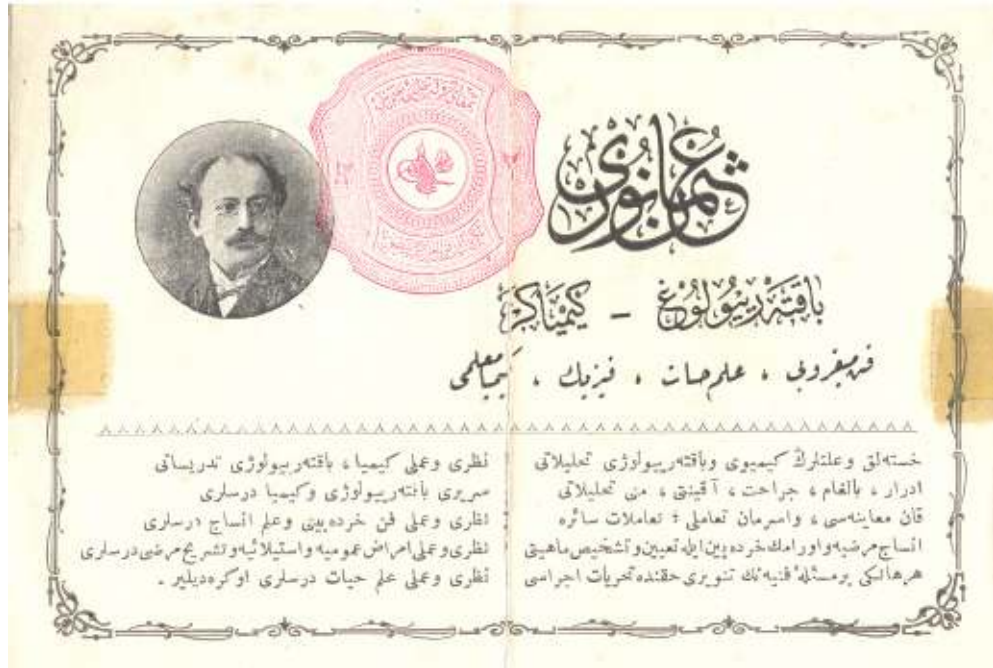 عثمان نوری
باقته‌ریولوغ – كیمیاكر
فن میقروبی ، علم حیات ، فیزیك ، كیمیا معلمی
خسته‌لق وعلتلرڭ كیمیوی وباقته‌ریپولوژی تحلیلاتی
ادرار ، بالغام ، جراحت ، آقینتی ، منی تحلیلاتی
قان معاینه‌سی ، واسرمان تعاملی + تعاملات سائره
انساج مرضیه واورامك خرده‌بین ایله تعیین وتشخیص ماهیتی
هرهانكی برمسئلهٔ فنیه‌نك تنویری حقنده تحریات اجراسی
نظری وعملی كیمیا ، باقته‌ریپولوژی تدریساتی
سریری باقته‌ریپولوژی وكیمیا درسلری
نظری وعملی فن خرده‌بینی وعلم انساج درسلری
نظری وعملی امراض عمومیه واستیلائیه وتشریح مرضی درسلری
نظری وعملی علم حیات درسلری اوكره‌دیلیر .